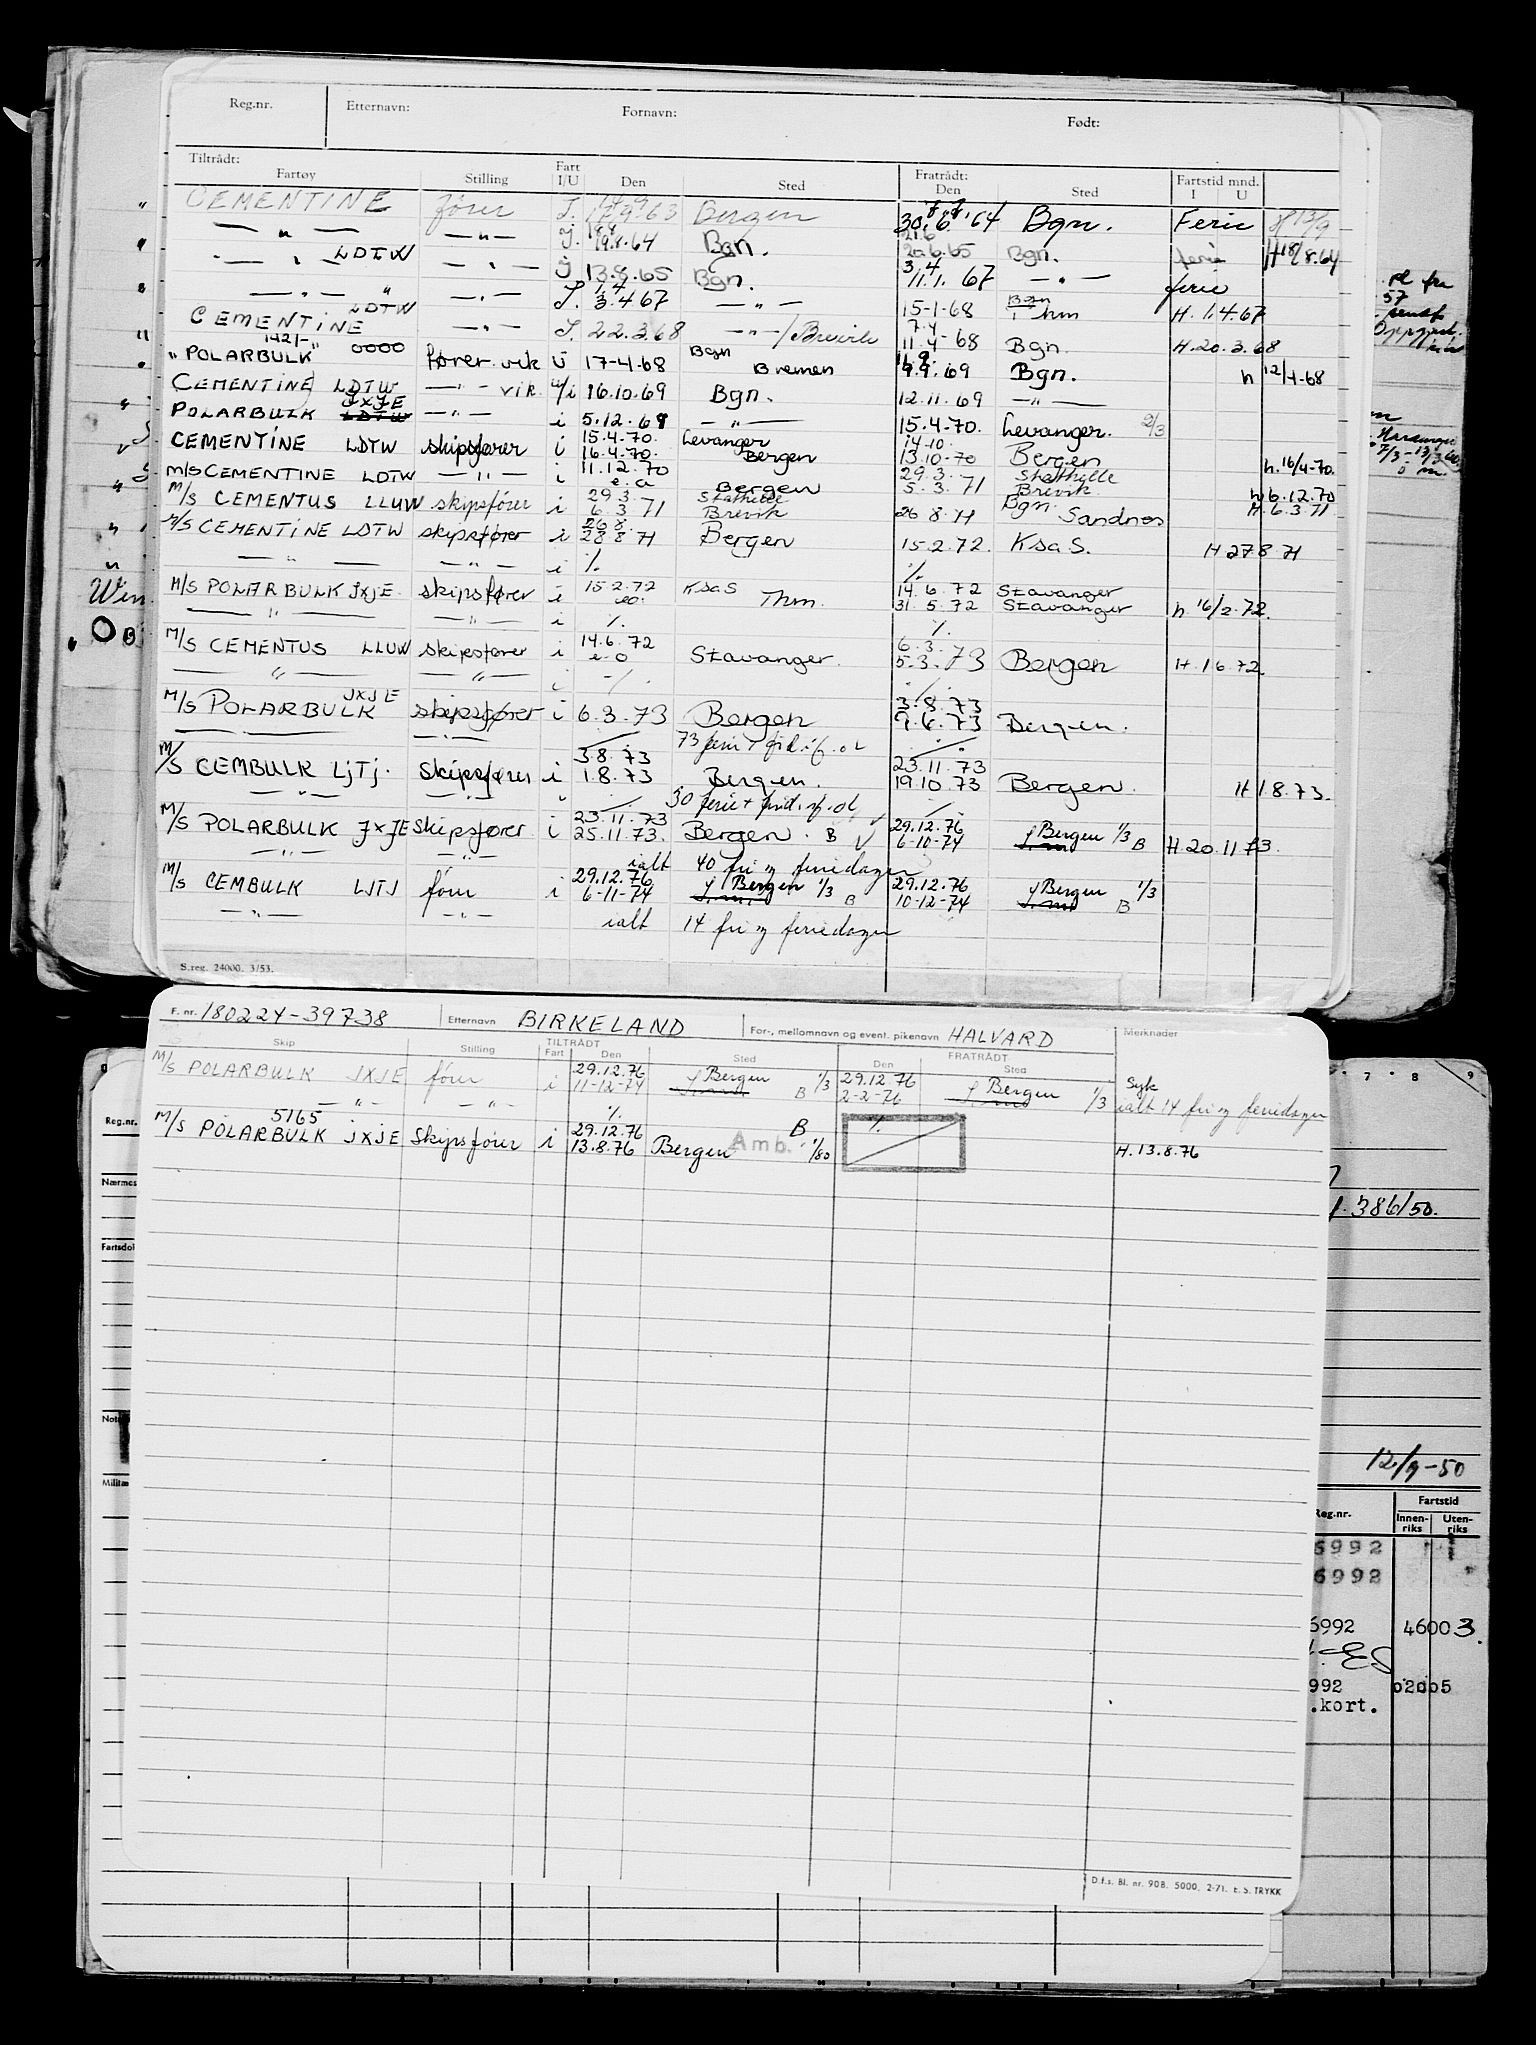 Reg.nr. Etternavn: Fornavn: Født:
Tiltrådt: Fratrådt:
Fartøy Stilling Fart I/U Den Sted Den Sted Fartstid mnd. I U
CEMENTINE fører J. 63 Bergen 30.6.64 Bgn. Ferie
— " — — " — J. 19.8.64 Bgn. 20.6.65 Bgn. ferie H 18/8.64
— " — LDTW — " — J 13.8.65 Bgn. 11.1.67 — " — ferie
— " — " — " — J. 3.4.67 — " — 15-1-68 Bgn Thm H. 1.4.67
CEMENTINE LDTW — " — J. 22.3.68 — " — / Brevik 11.4-68 Bgn. H. 20.3.68
"POLARBULK" 0000 fører. vik u 17-4-68 Bgn Bremen 9.9.69 Bgn. h 12/4-68
CEMENTINE LDTW — " — vik. u/i 16.10.69 Bgn. 12.11.69 — " —
POLARBULK JXJE LDTW — " — i 5.12.69 — " — 15.4-70. Levanger. 2/3
CEMENTINE LDTW skipsfører i 15.4-70. 16.4-70. Levanger Bergen 14-10. 13.10-70 Bergen h. 16/4-70.
M/S CEMENTINE LDTW — " — i 11.12.70 e.a Bergen 29.3. 5.3.71 Stathelle Brevik h 6.12.70
M/S CEMENTUS LLUW skipsfører i 29.3. 6.3.71 Stathelle Brevik 26 8.71 Bgn. Sandnes H. 6.3.71
M/S CEMENTINE LDTW skipsfører i 26 8. 28 8 71 Bergen 15.2.72. KsaS. H 27.8 71
— " — — " — i %. %.
M/S POLARBULK JXJE. skipsfører i 15-2.72 eo. KsaS Thm. 14.6.72 31.5.72 Stavanger Stavanger h 16/2.72.
— " — — " — i %. %.
M/S CEMENTUS LLUW skipsfører i 14.6.72 e-o Stavanger. 6.3. 5.3.73 Bergen H. 1 6.72.
— " — — " — i
M/S POLARBULK JXJE skipsfører i 6.3.73 Bergen 3.8.73 9.6.73 Bergen.
— " — — " — 73 ferie + frid. if. ol
M/S CEMBULK LJTJ. skipsfører i 3.8.73 1.8.73 Bergen. 23.11.73 19.10.73 Bergen. H 1.8.73.
— " — — " — 30 ferie + frid. if. ol
M/S POLARBULK JXJE skipsfører i 23.11.73 25.11.73. Bergen. B 29.12.76 6-10-74 Bergen 1/3 B H. 20.11 73.
— " — — " — ialt 40 fri og feriedager
M/S CEMBULK LJTJ fører i 29.12.76 6-11-74 Bergen 1/3 B 29.12.76 10-12-74 Bergen 1/3 B
— " — — " — ialt 14 fri og feriedager
S.reg. 24000. 3/53.
F. nr. 180224-39738 Etternavn BIRKELAND For-, mellomnavn og event. pikenavn HALVARD Merknader
Skip Stilling TILTRÅDT Fart Den Sted FRATRÅDT Den Sted
M/S POLARBULK JXJE fører i 29.12.76 11-12-74 Bergen B 1/3 29.12.76 2-2-76 Bergen 1/3 Syk
— " — — " — ialt 14 fri og feriedager
5165
M/S POLARBULK JXJE Skipsfører i %. 29.12.76 13.8.76 Bergen Amb. B 1/80 %. H. 13.8.76
D.f.s. Bl. nr. 90B. 5000. 2-71. E.S. TRYKK
Reg.nr.
7 8 9
386/50.
12/9-50
Reg.nr. Fartstid
Innen-riks Uten-riks
6992
6992 46003.
992 02005
.kort.